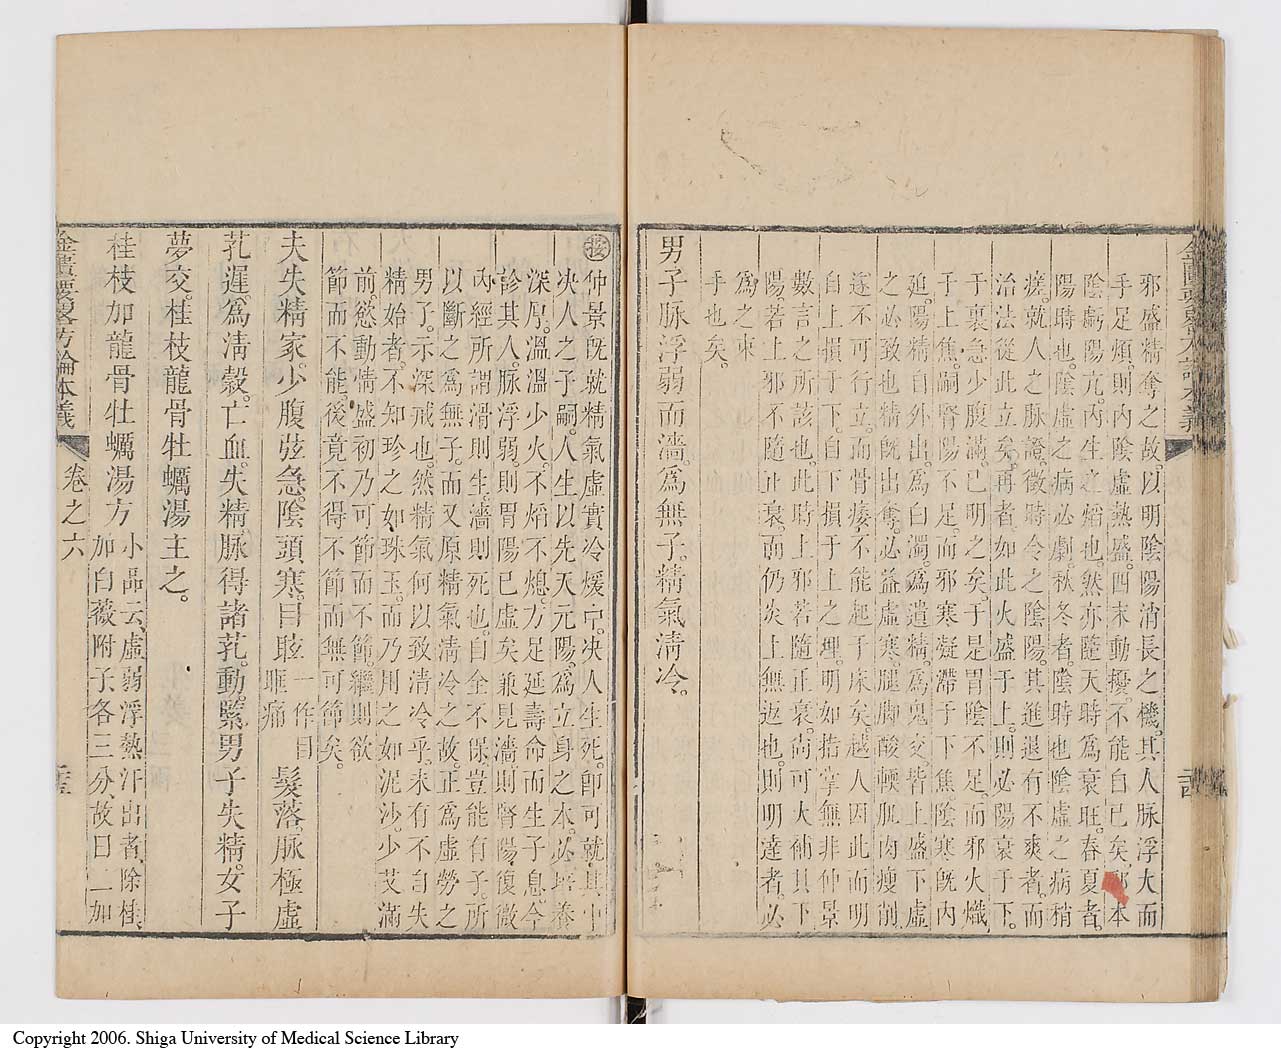 邪盛精奪之故。以明陰陽消長之機。其人脉浮大而
手足煩。則内陰虛熱盛。四末動擾。不能自已矣。本
陰虧陽亢。内生之焰也。然亦隨天時爲衰旺。春夏者。
陽時也。陰虛之病必劇。秋冬者。陰時也陰虛之病稍
瘥。就人之脉證。徵時令之陰陽。其進退有不爽者。而
治法從此立矣。再者。如此火盛于上。則必陽衰于下。
于裏急少腹滿。已明之矣。于是胃陰不足。而邪火熾
于上焦。嗣腎陽不足。而邪寒凝滯于下焦陰寒旣内
廹。陽精自外出。爲白濁。爲遺精。爲鬼交。皆上盛下虛
之必致也精旣出奪。必益虛寒。腿脚酸輭肌肉瘦削。
遂不可行立。而骨痿不能起于床矣。越人因此而明
自上損于下。自下損于上之理。明如指掌無非仲景
數言之所該也。此時上邪若隨正衰。尚可大補其下
陽。若上邪不隨正衰。而仍炎上無返也。則明達者。必
爲之束
手也矣。
男子脉浮弱而濇。爲無子。精氣淸冷。
㊟按仲景旣就精氣虛實冷煖中。决人生死。卽可就其中
决人之子嗣。人生以先天元陽。爲立身之本。必培養
深厚。溫溫少火。不焰不熄。力足延壽命而生子息。今
診其人。脉浮弱。則胃陽已虛矣兼見濇則腎陽復微
内經所謂滑則生。濇則死也。自全不保。豈能有子。所
以斷之爲無子。而又原精氣淸冷之故。正爲虛勞之
男子。示深戒也。然精氣何以致淸冷乎。未有不自失
精始者。不知珍之如珠玉。而乃用之如泥沙。少艾滿
前。慾動情盛初乃可節而不節。繼則欲
節而不能。後竟不得不節而無可節矣。
夫失精家。少腹弦急。陰頭寒。目眩一作目眶痛髮落。脉極虛
芤遲。爲淸穀。亡血。失精。脉得諸芤。動。緊。男子失精。女子
夢交。桂枝龍骨牡蠣湯主之。
桂枝加龍骨牡蠣湯方小品云、虛弱浮熱汗出者、除桂、加白薇附子、各三分故曰二加
金匱要畧方論本義
卷之六
Copyright 2006. Shiga University of Medical Science Library